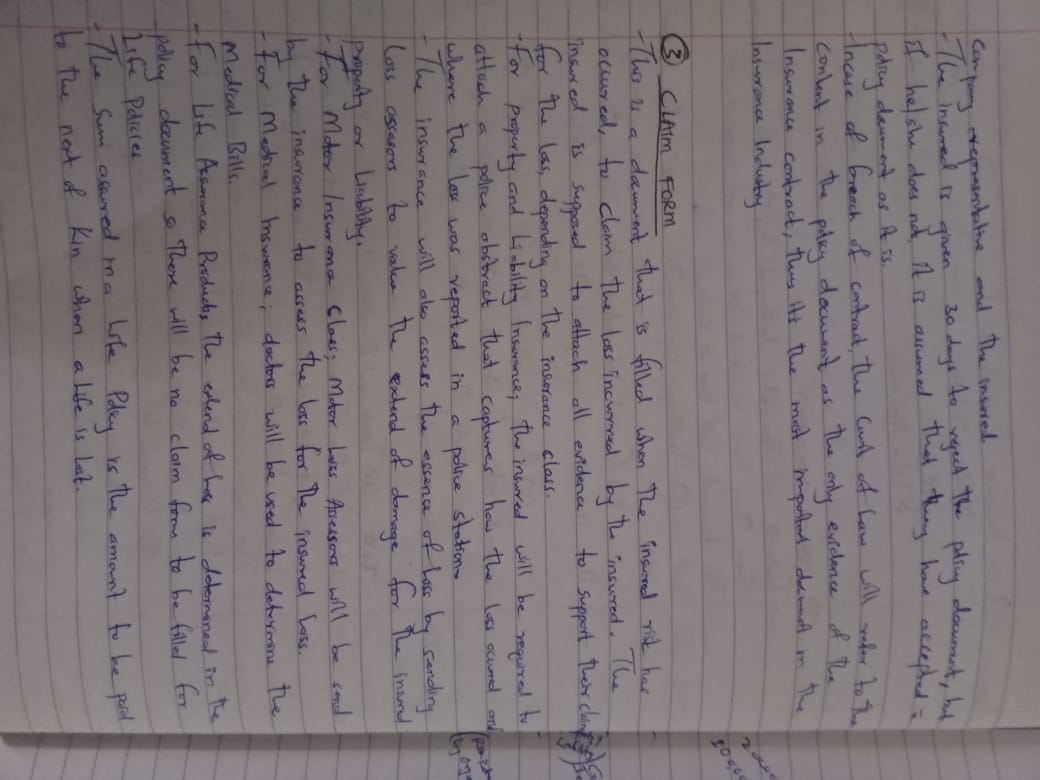 company representative and the insured
- The insured is given 30 days to reject the policy document, but
if he/she does not, it is assumed that they have accepted =
policy document as it is.
- Incase of breach of contract, the Court of Law will refer to the
content in the policy document as the only evidence of the
Insurance contract, thus its the most important document in the
Insurance Industry
③ CLAIM FORM
- This is a document that is filled when the insured risk has
occurred, to claim the loss incurred by the insured. The
insured is supposed to attach all evidence to support their claim
for the loss, depending on the insurance class.
- For property and Liability Insurance; the insured will be required to
attach a police abstract that captures how the loss occured and
where the loss was reported in a police station.
- The insurance will also assess the essence of loss by sending
Loss assessors to value the extend of damage for the insured
property or Liability.
- For Motor Insurance Class; Motor Loss Assessors will be send
by the insurance to assess the loss for the insured loss.
- For Medical Insurance; doctors will be used to determine the
Medical Bills.
- For Life Assurance Products, the extend of loss is determined in the
policy document so there will be no claim form to be filled for
Life Policies
- The Sum assured in a Life Policy is the amount to be paid
to the next of Kin when a life is lost.